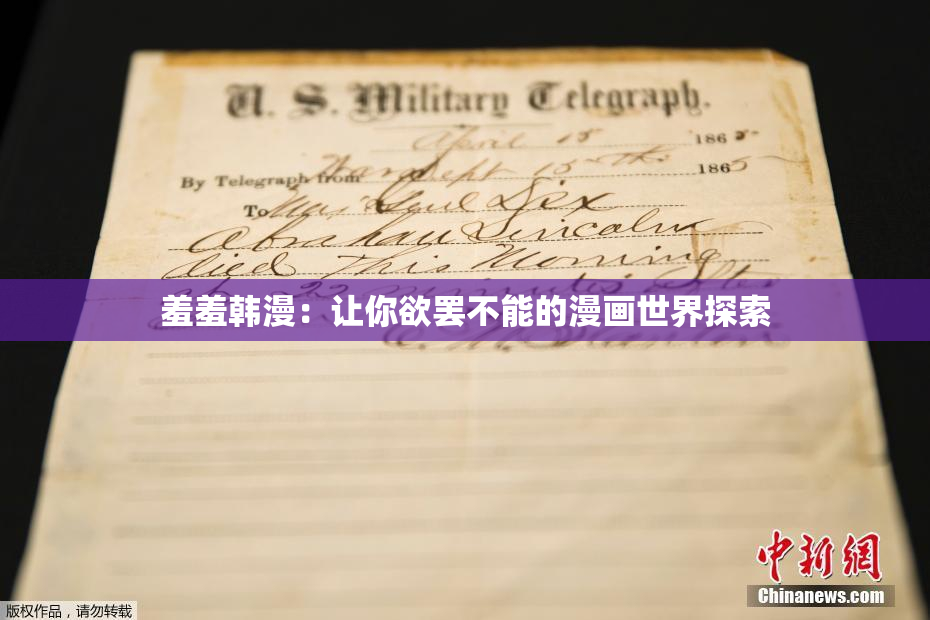 U. S. Military Telegraph.
April 15 1865
By Telegraph from War Dept 15th 1865
To Maj Genl Dix
Abraham Lincoln
died This Morning
at 22 minutes after
羞羞韩漫：让你欲罢不能的漫画世界探索
E. M. Stanton
中新網
Chinanews.com
版权作品，请勿转载